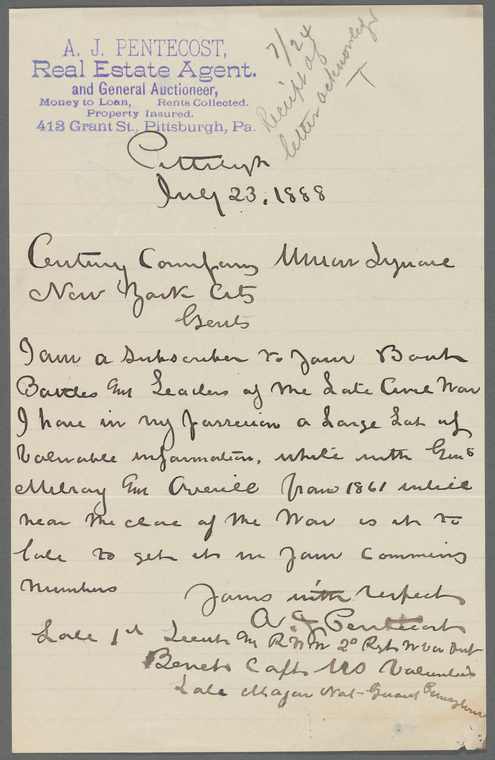 A. J. PENTECOST,
Real Estate Agent.
and General Auctioneer,
Money to Loan, Rents Collected.
Property Insured.
413 Grant St., Pittsburgh, Pa.
7/24
Receipt of
letter acknowledgd
Pittsburgh
July 23, 1888
Century Company Union Square
New York City
Gents
I am a subscriber to your Book
Battles and Leaders of the Late Civil War
I have in my possession a Large Lot of
Valuable information, while with Genls
Milroy and Averill from 1861 untill
near the close of the War is it to
late to get it in your comming
numbers
Yours with respect
A J Pentecost
Late 1st Lieut and R.Q.M 2d Regt W Va Inft
Brevet Capt US Volunteers
Late Major Nat-Guard Pennsylvania